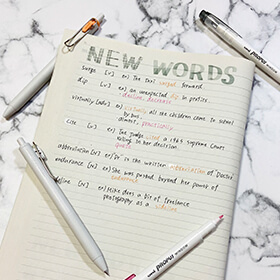 NEW WORDS
surge [v.] ex) The taxi surged forward.
dip [n.] ex) an unexpected dip in profits
decline, decrease
virtually [adv.] ex) virtually all the children come to school by bus.
almost, practically
cite [v.] ex) The judge cited a 1956 supreme court ruling in her decision
quote
abbreviation [n.] ex) "Dr" is the written abbreviation of Doctor
endurance [n.] ex) She was pushed beyond the power of endurance
line [n.] ex) Mike does a bit of freelance photography as a sideline
PROPUS WINDOW